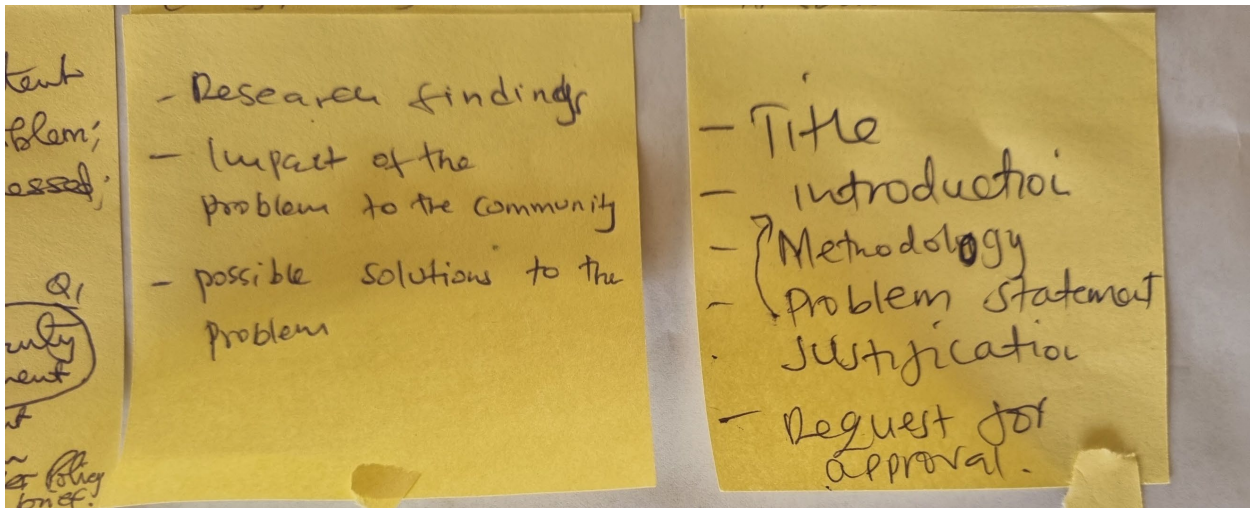 blem;
Q1
Policy
brief.
- Research findings
- Impact of the
problem to the community
- possible solutions to the
problem
- Title
- introduction
- Methodology
- Problem statement
. Justification
- Request for
approval.